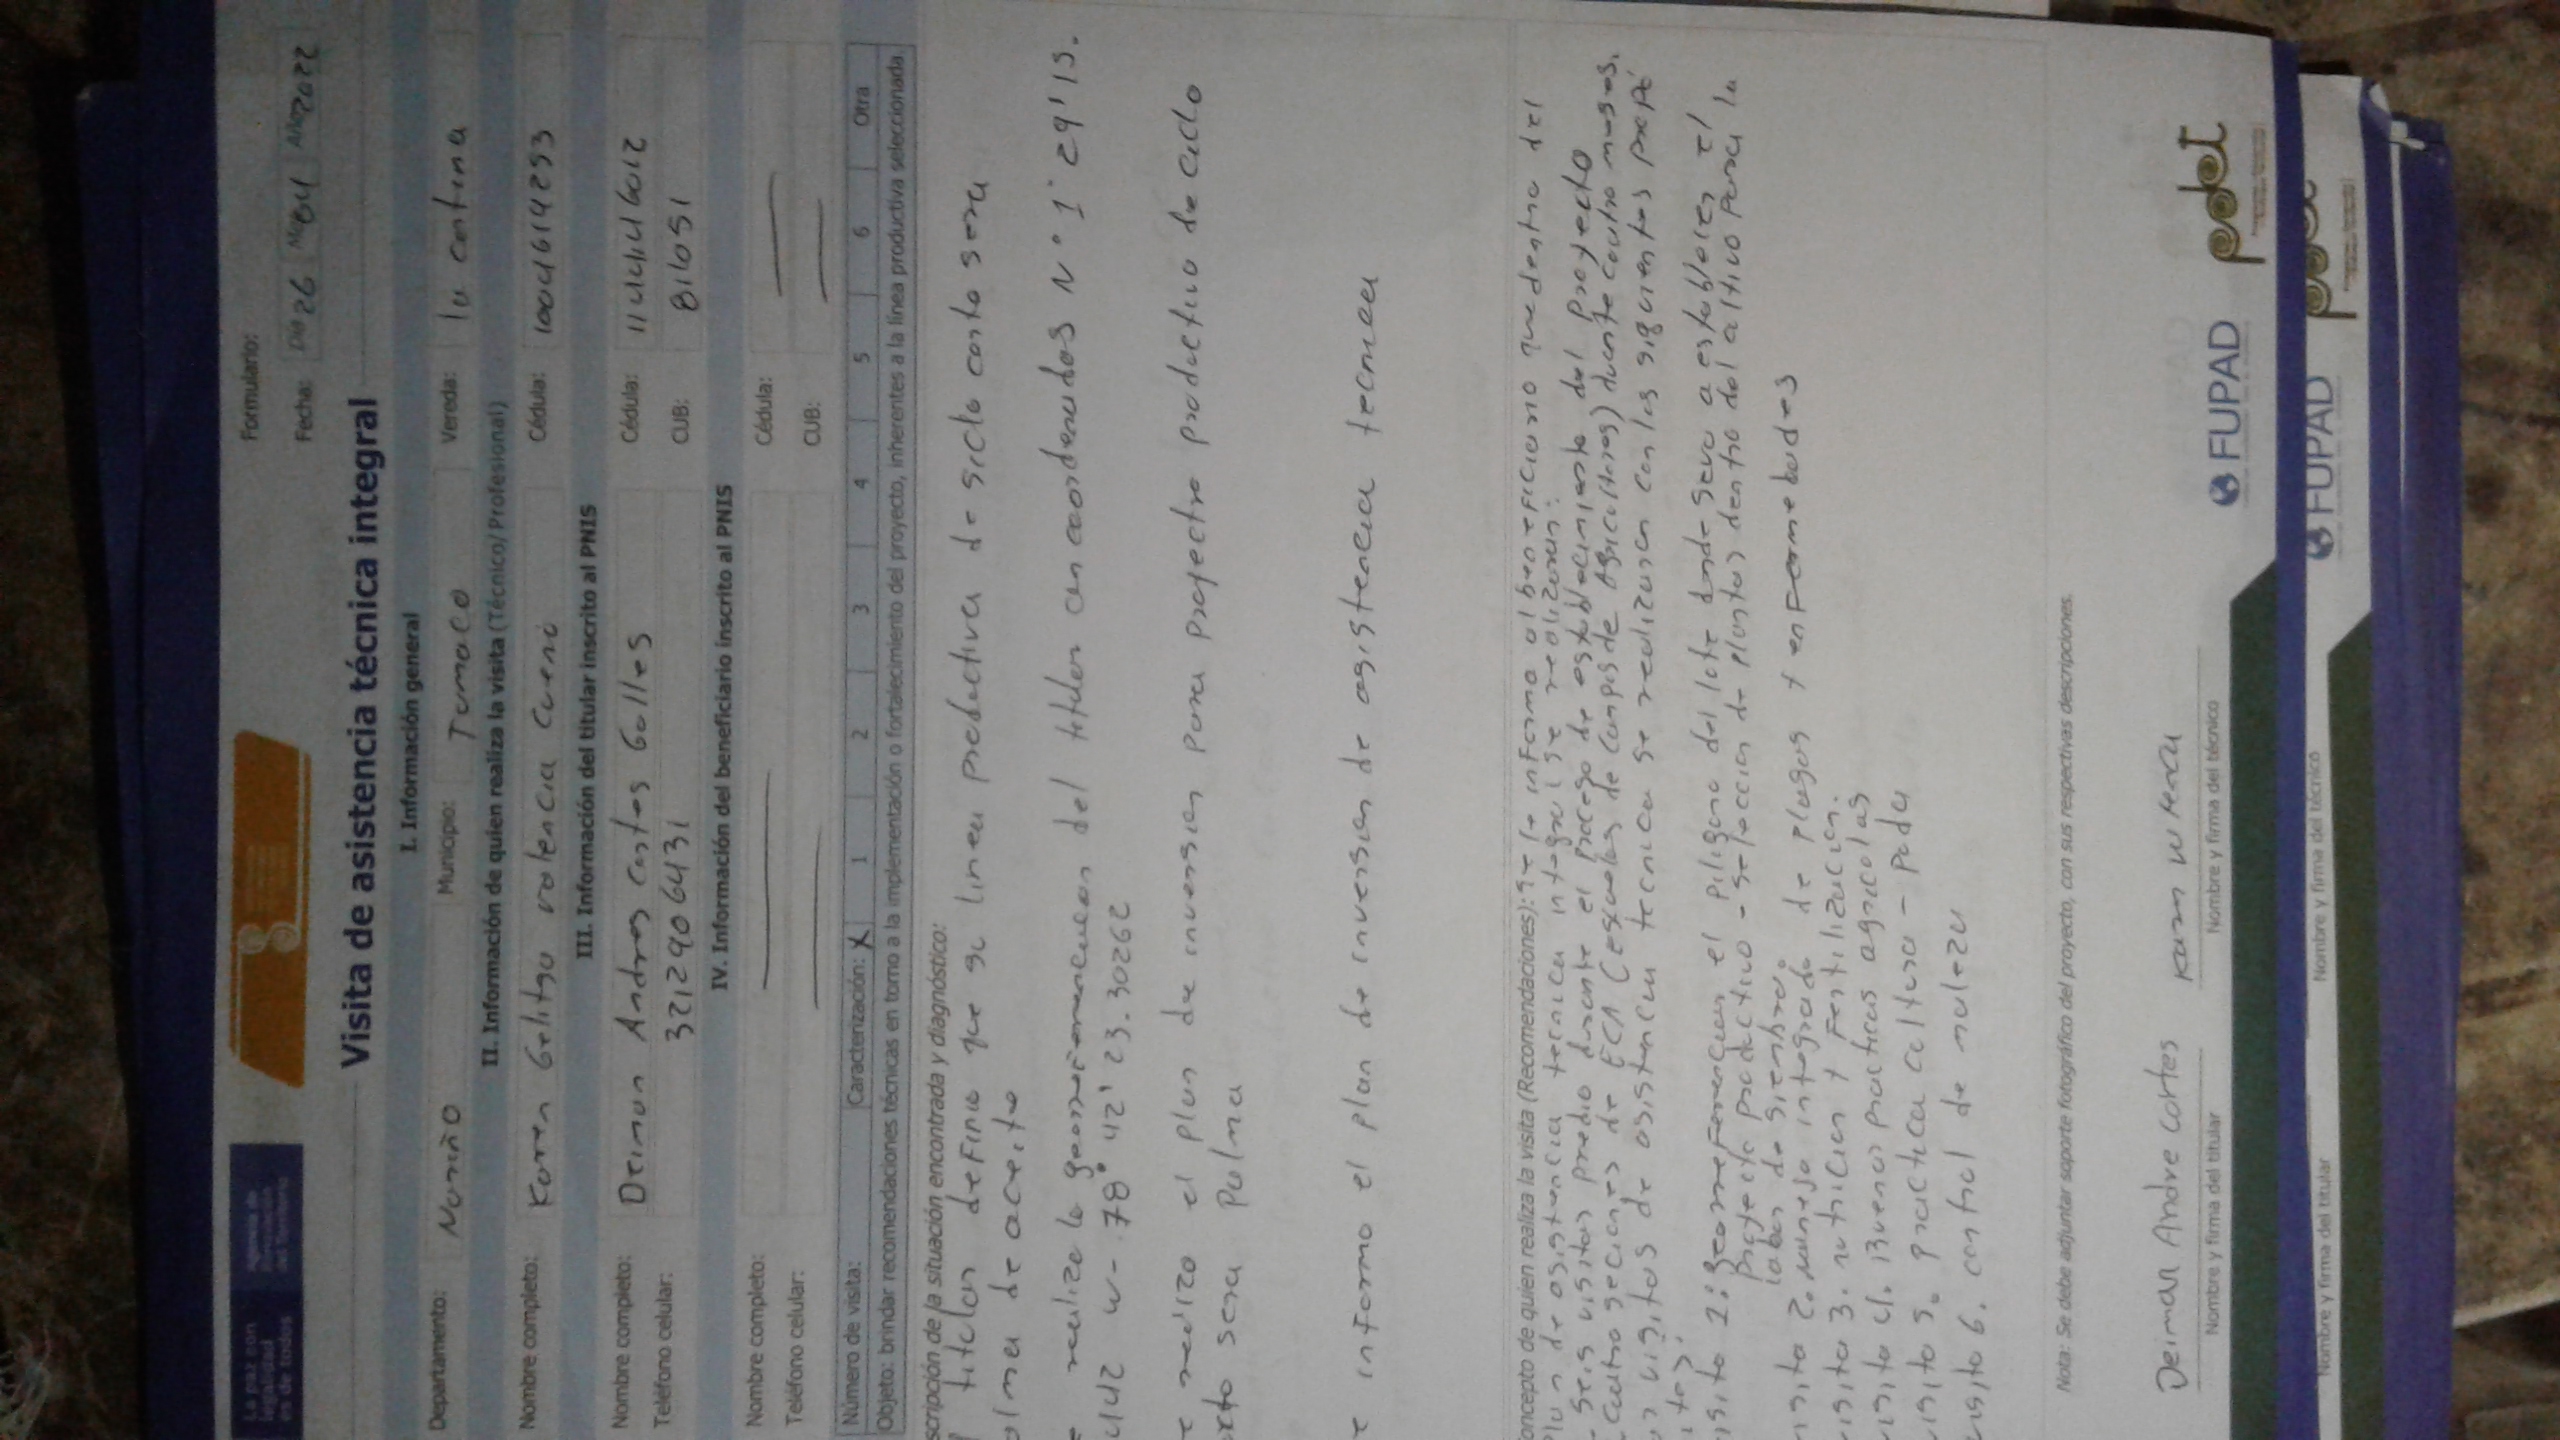 La paz con
legalidad
es de todos
Agencia de
Renovación
del Territorio
Formulario:
Fecha: Día 26 Mes 04 Año 2022
Visita de asistencia técnica integral
I. Información general
Departamento: Nariño Municipio: Tumaco Vereda: la cortina
II. Información de quien realiza la visita (Técnico/ Profesional)
Nombre completo: Karen Gelitza valencia Cuero Cédula: 1004614293
III. Información del titular inscrito al PNIS
Nombre completo: Deiman Andres cortes Galles Cédula:
Teléfono celular: 3212906431 CUB: 81051
IV. Información del beneficiario inscrito al PNIS
Nombre completo: Cédula:
Teléfono celular: CUB:
Número de visita: Caracterización: X 1 2 3 4 5 6 Otra
Objeto: brindar recomendaciones técnicas en torno a la implementación o fortalecimiento del proyecto, inherentes a la línea productiva seleccionada.
scripción de la situación encontrada y diagnóstico:
titular definio que su linea productiva de siclo corto sera
alma de aceite
realizo la georreferenciacion del titular con coordenadas N° 1° 29' 15.
w- 78° 42' 23.30262
realizo el plan de inversion para proyecto productivo de ciclo
orto sera palma
e informo el plan de inversion de asistencia tecnica
oncepto de quien realiza la visita (Recomendaciones): se le informo al beneficiario que dentro del
Plan de asistencia tecnica integral se realizaran:
- Seis visitas predio durante el proceso de establecimiento del proyecto
- Cuatro seciones de ECA (escuelas de campos de Agricultores) durante cuatro meses.
s visitas de asistencia tecnica se realizaran con los siguientes propó
itos.
isita 1: georreferenciar el poligono del lote donde seva a establecer el
proyecto productivo - seleccion de plantas dentro del cultivo para la
labor de siembra.
isita 2. manejo integrado de plagas y enfermedades
isita 3. nutricion y Fertilizacion.
isita 4. Buenas practicas agricolas
isita 5. practica cultura - poda
isita 6. control de maleza
Nota: Se debe adjuntar soporte fotográfico del proyecto, con sus respectivas descripciones.
Deiman Andre Cortes
Nombre y firma del titular Nombre y firma del técnico
FUPAD pdet
Nombre y firma del titular Nombre y firma del técnico
FUPAD